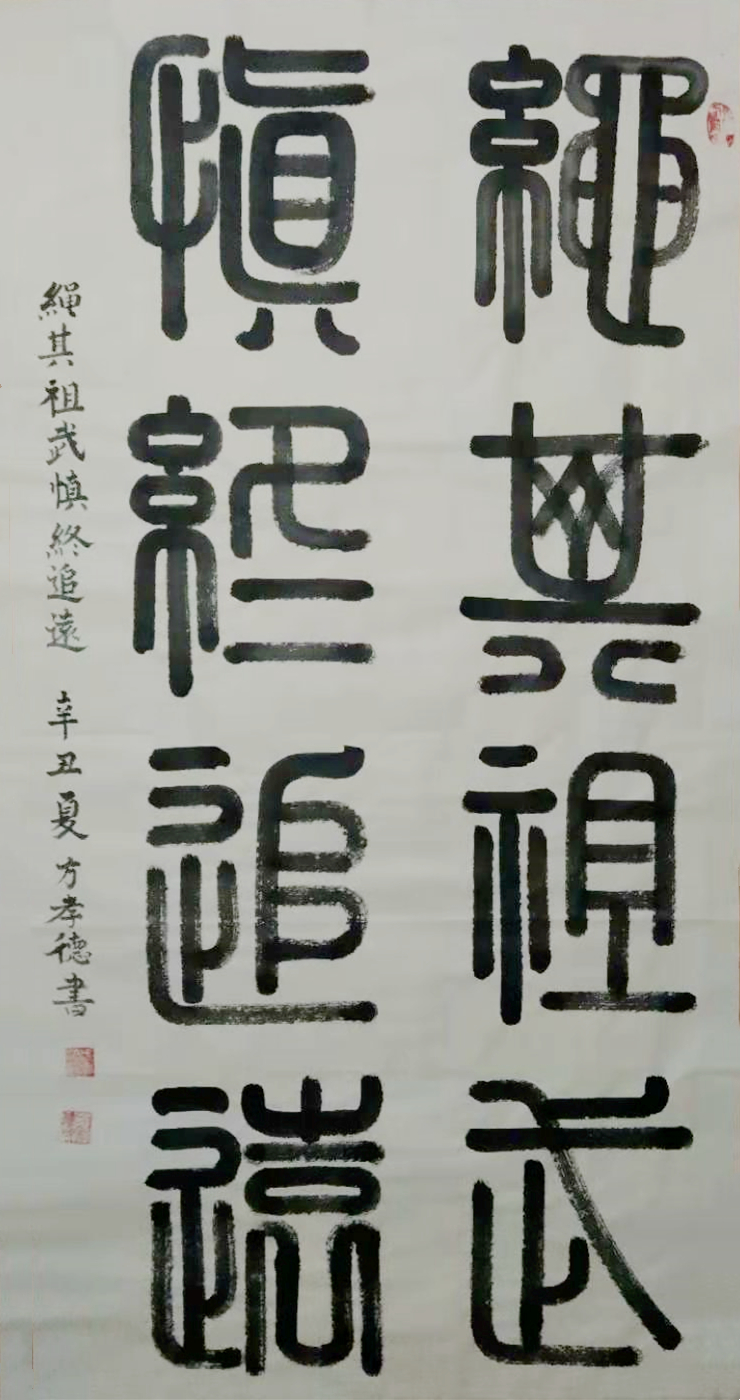 繩其祖武
慎終追遠
繩其祖武慎終追遠 辛丑夏方孝德書